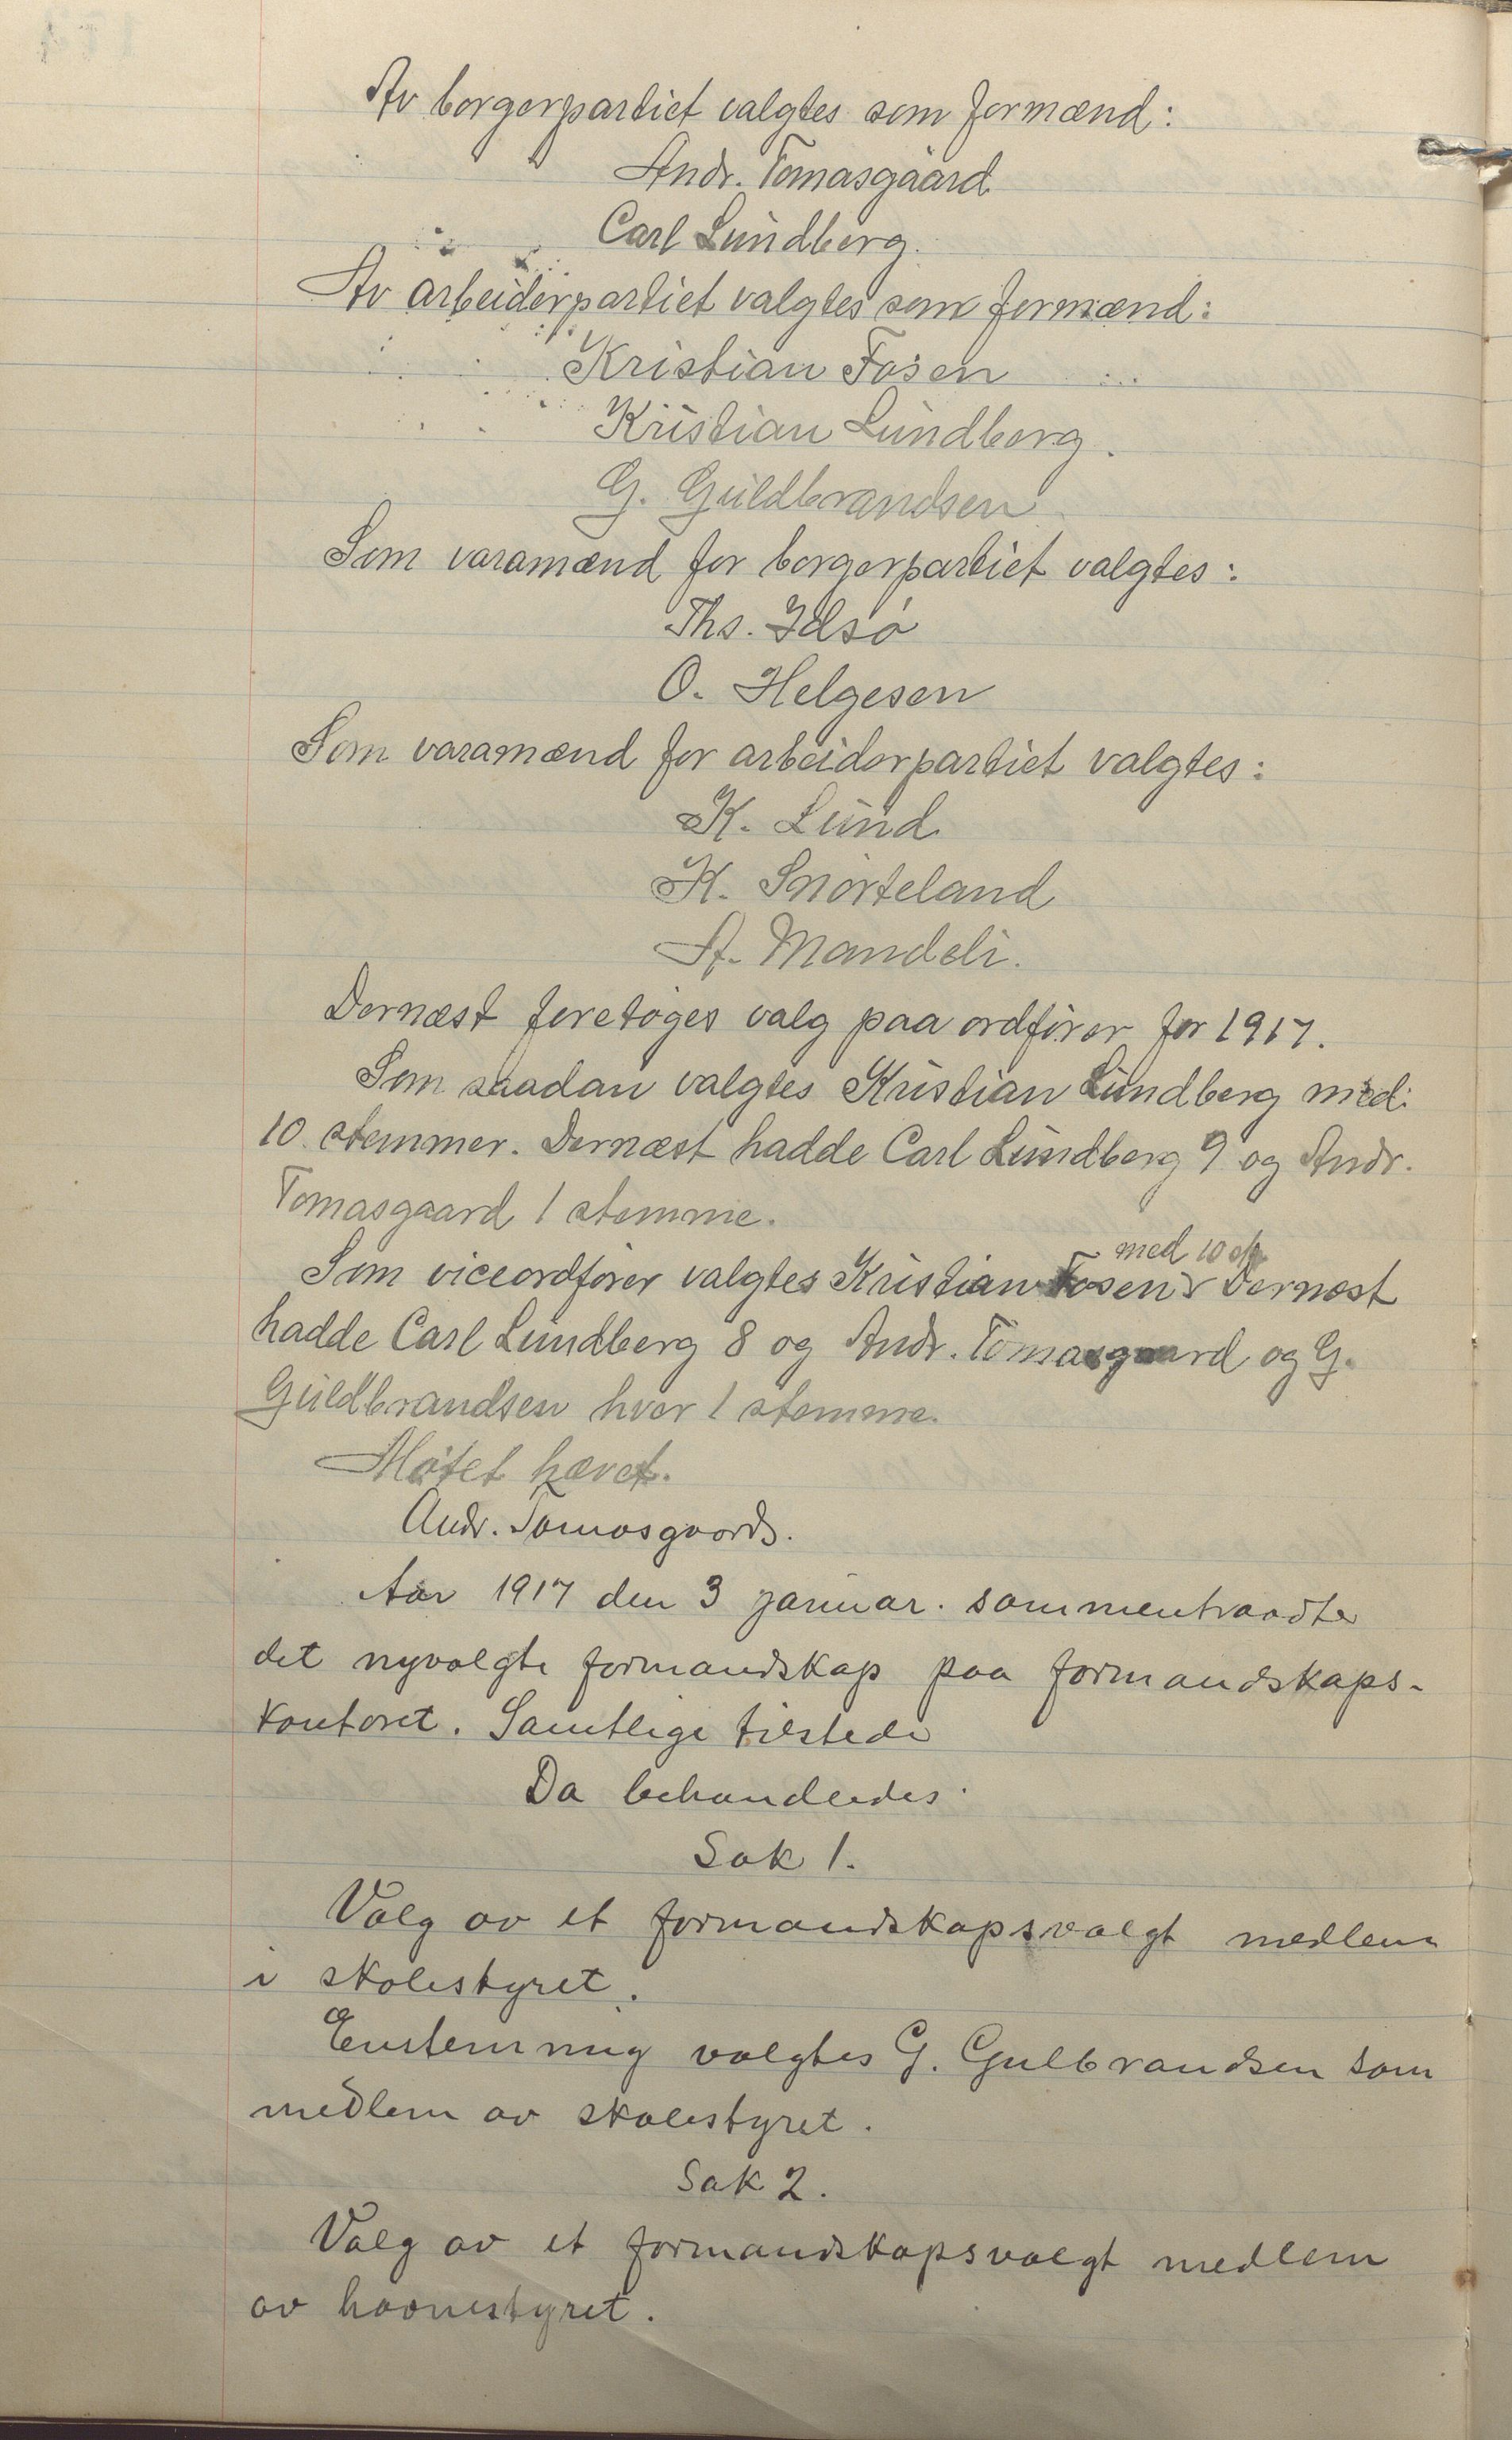 Av borgerpartiet valgtes som formænd:
Andr. Tomasgaard
Carl Lundberg.
Av arbeiderpartiet valgtes som formænd:
Kristian Fosen
Kristian Lundberg.
G. Guldbrandsen
Som varamænd for borgerpartiet valgtes:
Ths. Idsø
O. Helgesen
Som varamænd for arbeiderpartiet valgtes:
K. Lund
K. Snørteland
A. Mandeli.
Dernæst foretoges valg paa ordfører for 1917.
Som saadan valgtes Kristian Lundberg med
10 stemmer. Dernæst hadde Carl Lundberg 9 og Andr.
Tomasgaard 1 stemme.
med 10 st.
Som viceordfører valgtes Kristian Fosen Dernæst
hadde Carl Lundberg 8 og Andr. Tomasgaard og G.
Guldbrandsen hver 1 stemme.
Møtet hævet.
Andr. Tomasgaard.
Aar 1917 den 3 januar. sammentraadte
det nyvalgte formandskap paa formandskaps-
kontoret. Samtlige tilstede
Da behandledes
Sak 1.
Valg av et formandskapsvalgt medlem
i skolestyret.
Enstemmig valgtes G. Gulbrandsen som
medlem av skolestyret.
Sak 2.
Valg av et formandskapsvalgt medlem
av havnestyret.